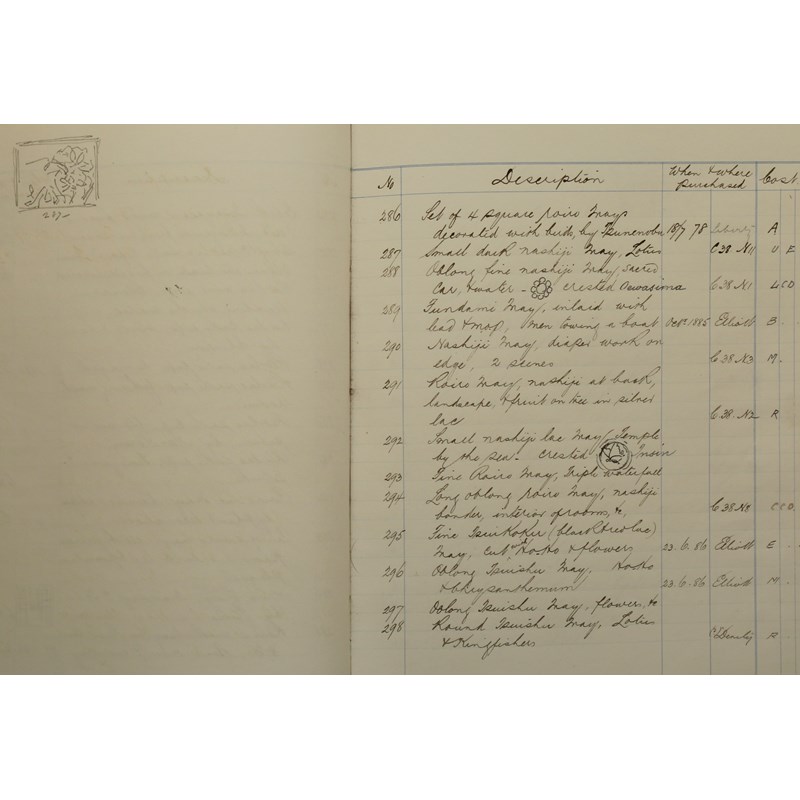 287
No Description When & where purchased Cost
286 Set of 4 square roiro Trays
decorated with birds, by Tsunenobu 18/7 78 Liberty A
287 Small dark nashiji Tray, Lotus C 38 N11 U E
288 Oblong fine nashiji Tray, sacred
Car, & water - crested Owasima C 38 N1 L C D
289 Fundami Tray, inlaid with
lead & mop, men towing a boat Octr. 1885 Elliott B.
290 Nashiji Tray, diaper work on
edge, 2 scenes C 38 N3 M.
291 Roiro Tray, nashiji at back,
landscape, & fruit on tree in silver
lac C 38. N2 R
292 Small nashiji lac Tray, Temple
by the sea. crested
293 Fine Roiro Tray, Triple waterfall
294 Long oblong roiro Tray, nashiji
border, interior of rooms, &c, C 38 N C C D.
295 Fine Tsuikoku (black & red lac)
Tray, cut, Ho-Ho & flowers 23. 6. 86 Elliott E
296 Oblong Tsuishu Tray. Ho-Ho
& Chrysanthemum 23. 6. 86 Elliott M.
297 Oblong Tsuishu Tray, flowers, &c
298 Round Tsuishu Tray, Lotus
& Kingfishers R